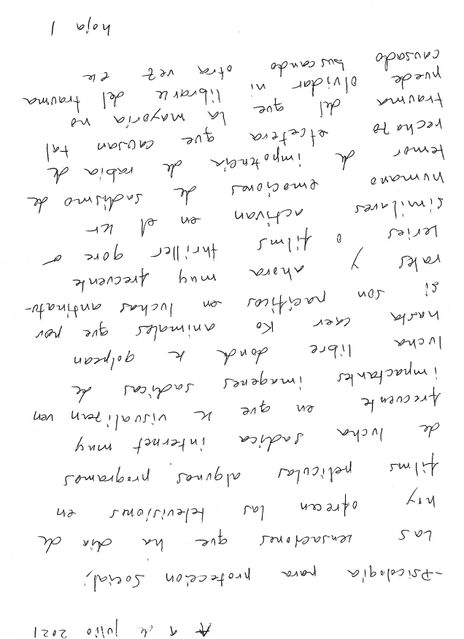 A 1 de julio 2021
-Psicología para protección Social;
Las sensaciones que ha dia de
hoy ofrecen las televisiones en
films peliculas algunos programas
de lucha sadica internet muy
frecuente en que se visualizan ven
impactantes imagenes sadicas de
lucha libre donde se golpean
hasta caer Ko animales que por
si son pacificos en luchas antinatu-
rales y ahora muy frecuente
series o films thriller gore o
similares activan en el ser
humano emociones de sadismo de
temor de impotencia de rabia de
rechazo etcetera que causan tal
trauma del que la mayoría no
puede olvidar ni librarse del trauma
causado buscando otra vez ese
hoja 1